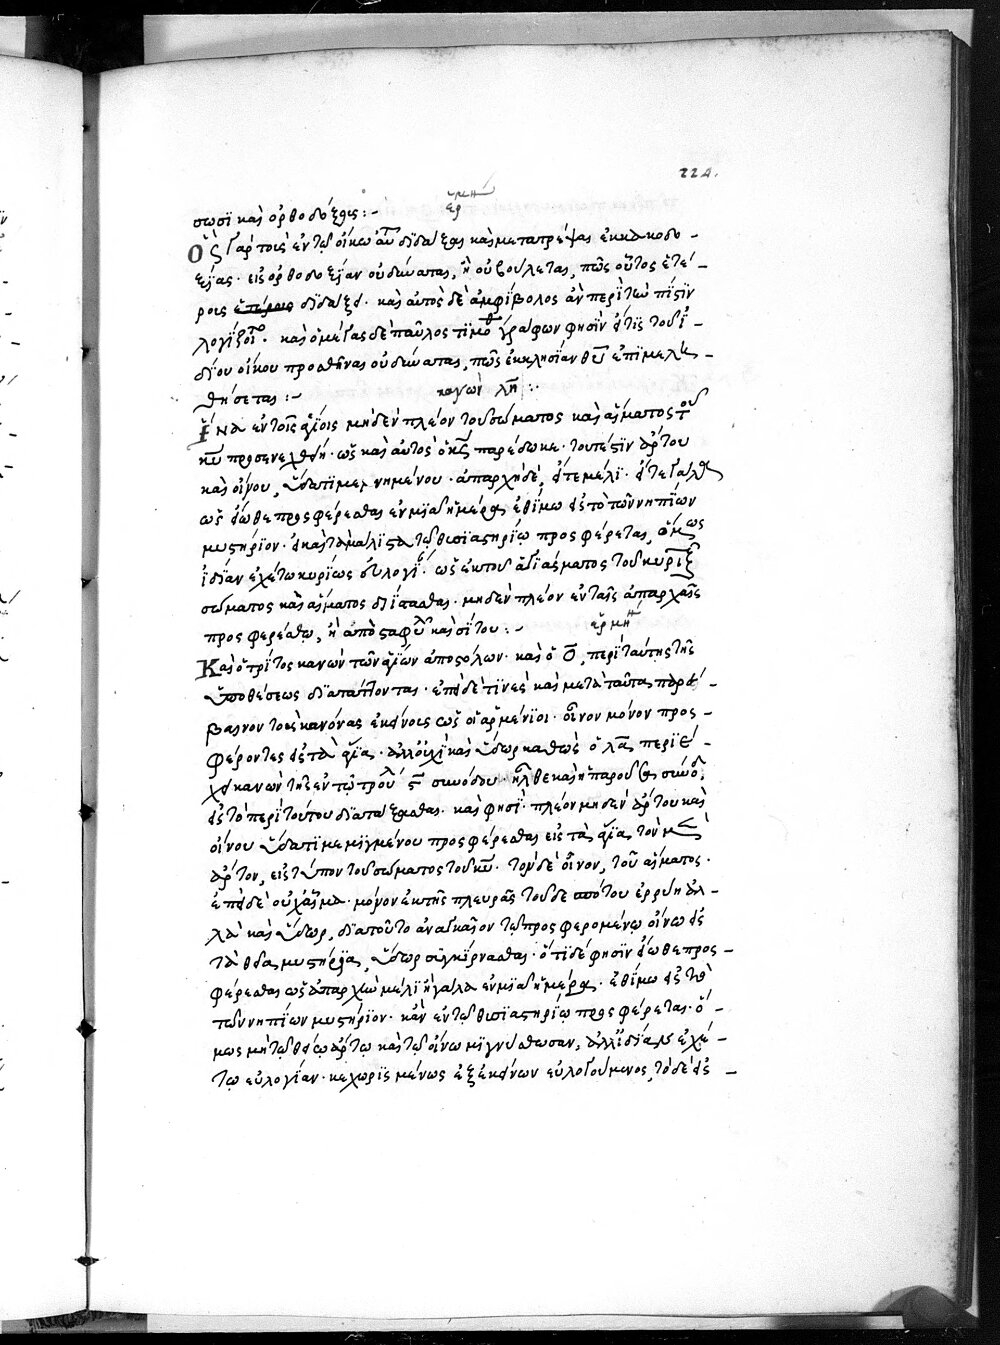 224.
σωσϊ καὶ ὀρθοδόξοις :- ἑρμη
Ὃς γὰρ τοὺς ἐν τῷ οἴκω αὐτοῦ διδάξαι καὶ μεταστρέψαι ἐκ κακοδο -
ξίας εἰς ὀρθοδοξίαν οὐ δύναται, ἢ οὐ βούλεται, πῶς οὗτος ἑτέ -
ροις διδάξει· καὶ αὐτὸς δὲ ἀμφίβολος ἂν περὶ τὴν πίστιν
λογίζοιτο· καὶ ὁ μέγας δὲ παῦλος τιμοθ γράφων φησὶν εἴ τις τοῦ ἰ -
δίου οἴκου προστῆναι οὐ δύναται, πῶς ἐκκλησίαν θυ ἐπιμελη -
θήσεται :- κανὼν λη :-
Ἵνα ἐν τοῖς ἁγίοις μηδὲν πλέον τοῦ σώματος καὶ αἵματος τοῦ
κυ προσενεχθείη· ὡς καὶ αὐτὸς ὁ κς παρέδωκε· τουτέστιν ἄρτου
καὶ οἴνου, ὕδατι μεμιγμένου· ἀπαρχὴ δὲ, εἴτε μέλι· εἴτε γάλα
ὡς εἴωθε προσφέρεσθαι ἐν μιᾷ ἡμέρᾳ ἐθίμω εἰς τὸ τῶν νηπίων
μυστήριον· εἰ καὶ τὰ μάλιστα τῷ θυσιαστηρίῳ προσφέρεται, ὅμως
ἰδίαν ἐχέτω κυρίως εὐλογί· ὡς ἐκ τοῦ ἁγιάσματος τοῦ κυριακοῦ
σώματος καὶ αἵματος διΐστασθαι· μηδὲν πλέον ἐν ταῖς ἀπαρχαῖς
προσφερέσθω, ἢ ἀπὸ σταφυλ καὶ σίτου :- ἑρμη
Καὶ ὁ τρίτος κανὼν τῶν ἁγίων ἀποστόλων· καὶ ὁ, περὶ ταύτης τῆς
ὑποθέσεως διαλαμβάνονται· ἐπεὶ δὲ τινὲς καὶ μετὰ ταῦτα παρέ -
βαινον τοὺς κανόνας ἐκείνους ὡς οἱ ἀρμένιοι· οἶνον μόνον προσ -
φέροντες εἰς τὰ ἅγια· ἀλλ' οὐχὶ καὶ ὕδωρ καθὼς ὁ λβ περιέ -
χει κανὼν τῆς ἐν τῷ τρούλ ς συνόδου· ἦλθε καὶ ἡ παροῦσα σύνοδ
εἰς τὸ περὶ τούτου διατάξασθαι· καὶ φησὶ· πλέον μηδὲν ἄρτου καὶ
οἴνου ὕδατι μεμιγμένου προσφέρεσθαι εἰς τὰ ἅγια, τὸν μὲν
ἄρτον, εἰς τύπον τοῦ σώματος τοῦ κυ· τὸν δὲ οἶνον, τοῦ αἵματος·
ἐπεὶ δὲ οὐχ αἷμα· μόνον ἐκ τῆς πλευρᾶς τοῦ δεσπότου ἐρρύη ἀλ -
λὰ καὶ ὕδωρ, διὰ τοῦτο ἀναγκαῖον τῷ προσφερομένῳ οἴνω εἰς
τὰ θεῖα μυστήρια, ὕδωρ συγκίρνασθαι· ὅτι δέ φησϊν εἴωθε προσ -
φέρεσθαι ὡς ἀπαρχὴν μέλι ἢ γάλα ἐν μιᾷ ἡμέρᾳ· ἐθίμω εἰς τὸ
τῶν νηπίων μυστήριον· κἂν ἐν τῷ θυσιαστηρίῳ προσφέρεται· ὅ -
μως μὴ τῷ θείῳ ἄρτῳ καὶ τῷ οἴνω μιγνύσθωσαν, ἀλλ' ἰδίαν ἐχέ -
τω εὐλογίαν· κεχωρισμένως ἐξ ἐκείνων εὐλογούμενος, τὸ δὲ εἰς -